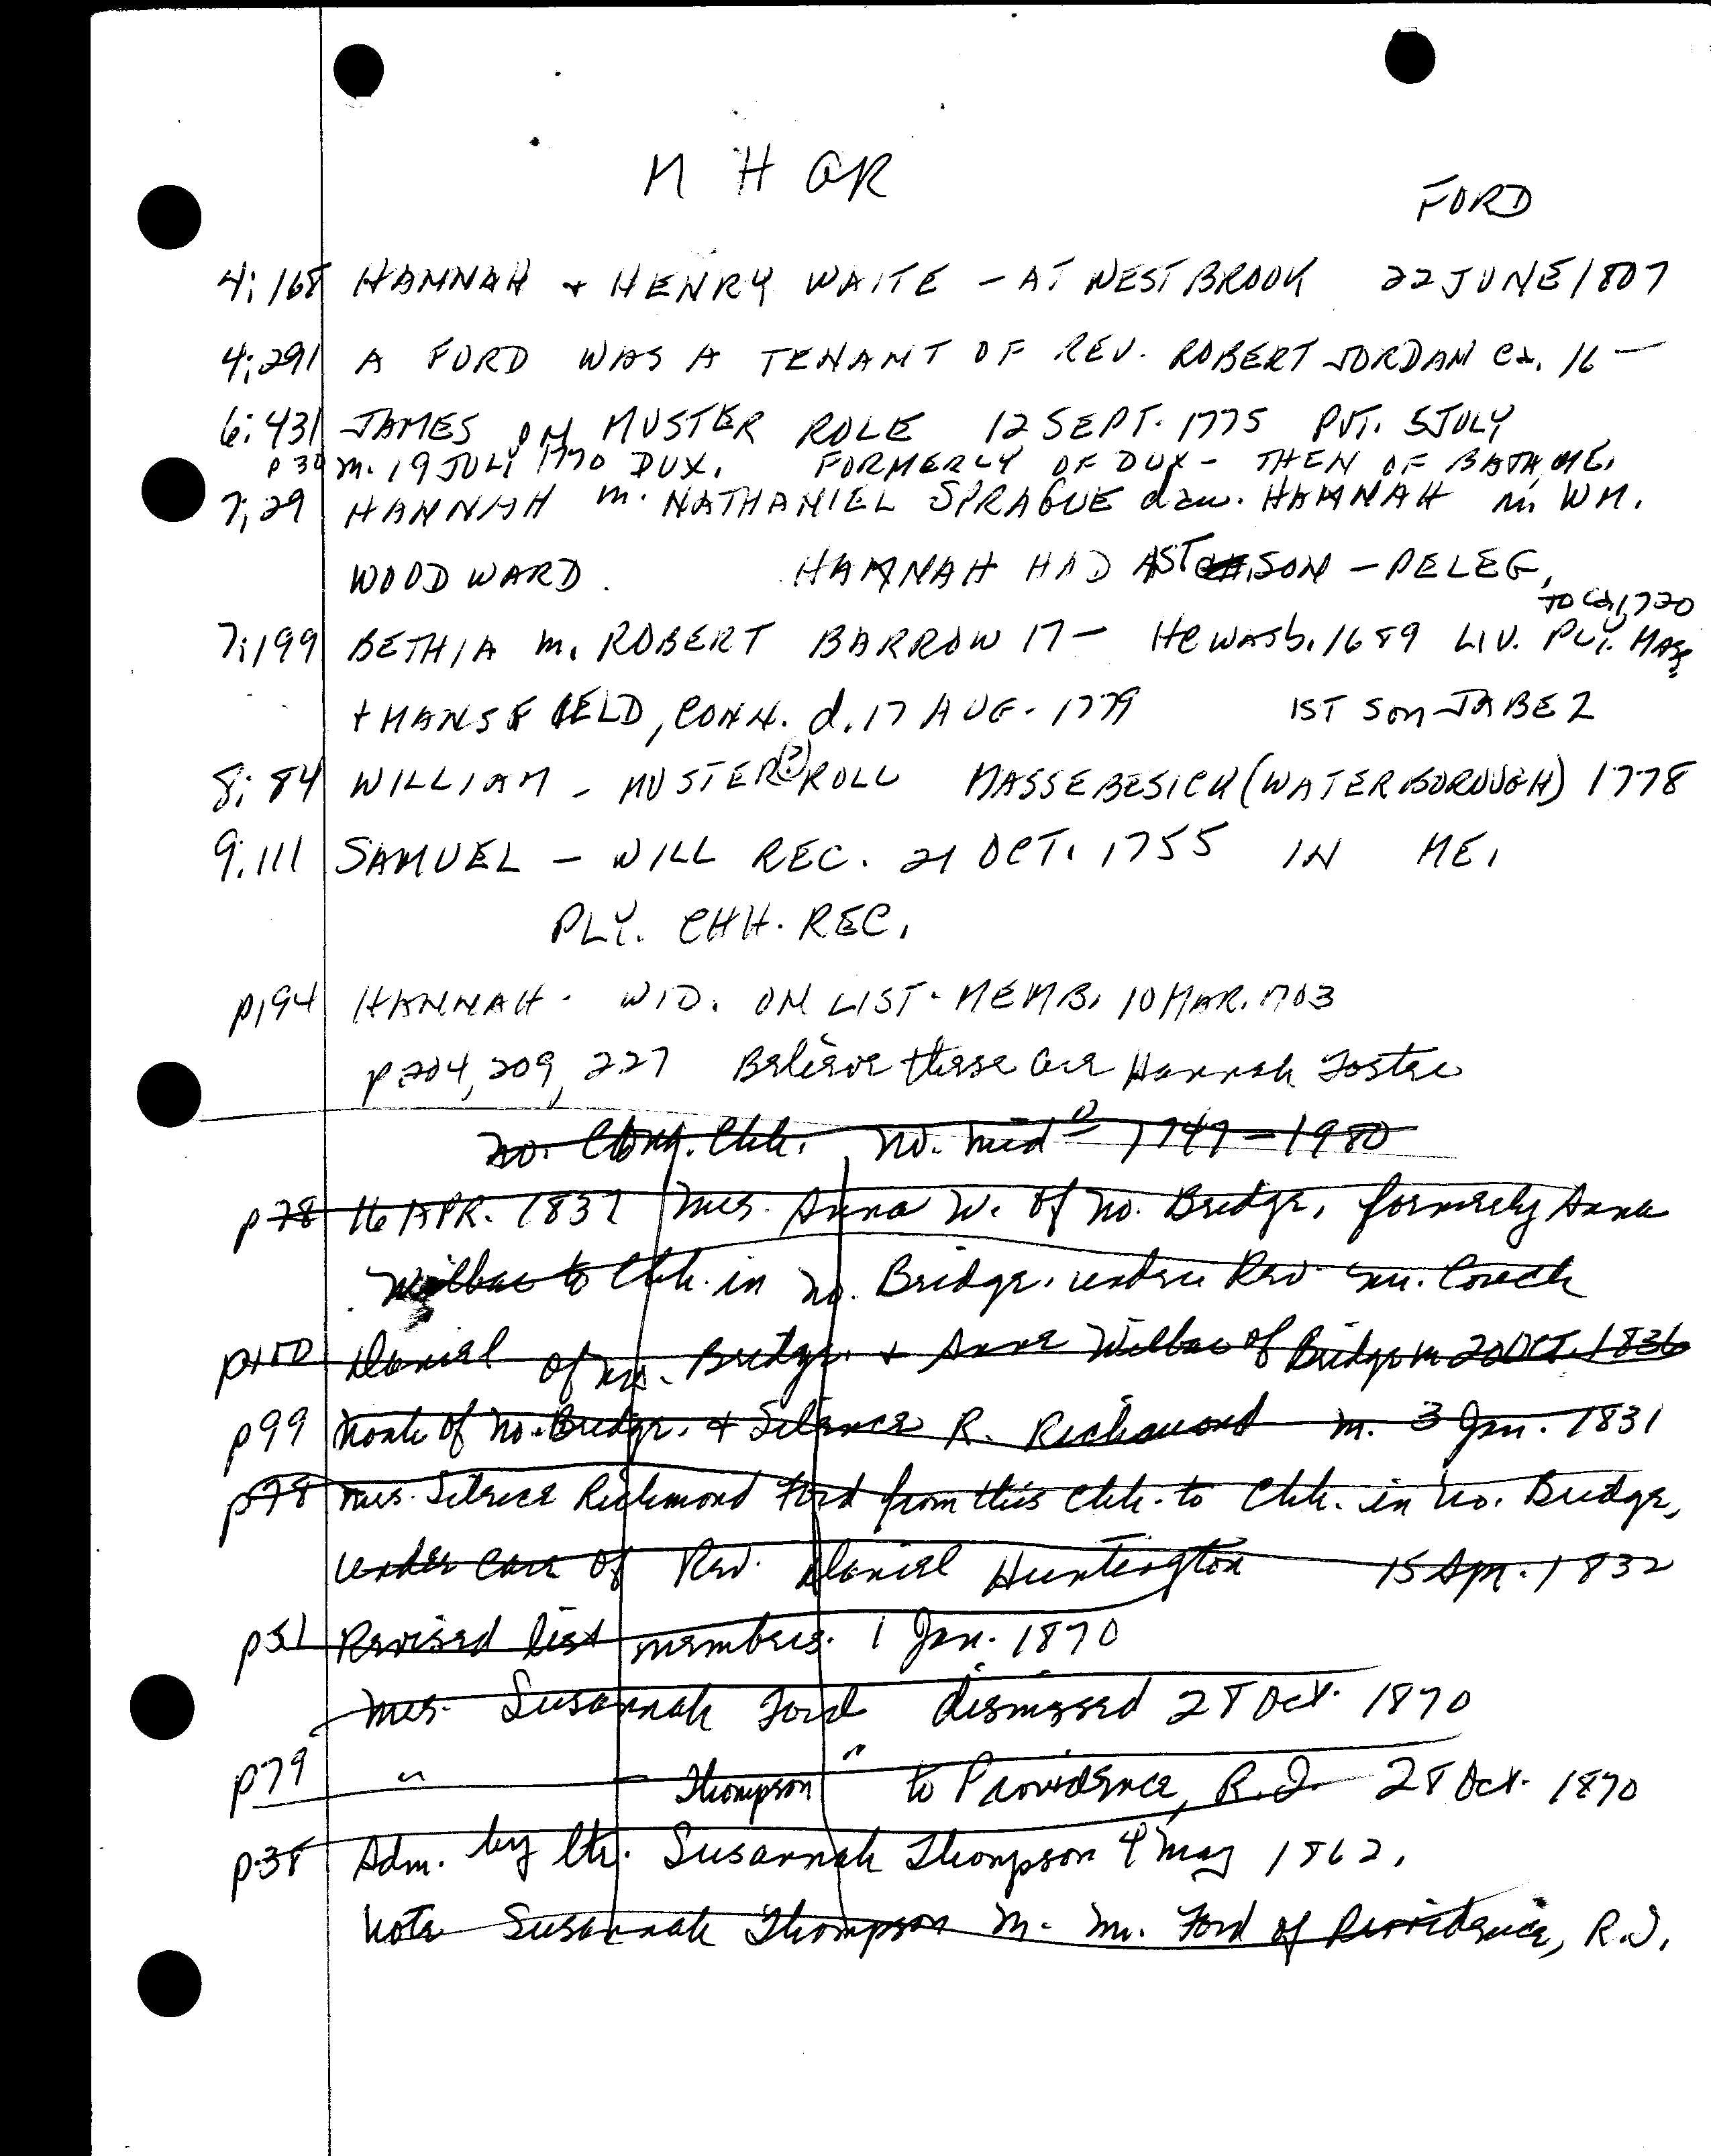 M H GR
FORD
4:168 HANNAH + HENRY WAITE - AT WESTBROOK 22 JUNE 1807
4:291 A FORD WAS A TENANT OF REV. ROBERT JORDAN ca. 16—
6:431 JAMES ON MUSTER ROLE 12 SEPT. 1775 PVT. 5 JULY
p 30 m. 19 JULY 1770 DUX. FORMERLY OF DUX - THEN OF BATH, ME.
7:29 HANNAH m. NATHANIEL SPRAGUE dau. HANNAH m. WM.
WOODWARD. HANNAH HAD 1ST SON - PELEG,
to ca 1720
7:199 BETHIA m. ROBERT BARROW 17— He was b. 1689 LIV. PLY. MASS
+ MANSFIELD, CONN. d. 17 AUG. 1779 1ST SON JABEZ
8:84 WILLIAM - MUSTER(?) ROLL MASSEBESICK (WATERBOROUGH) 1778
9:111 SAMUEL - WILL REC. 21 OCT. 1755 IN ME.
PLY. CHH. REC.
p194 HANNAH - WID. ON LIST - MEMB. 10 MAR. 1703
p 204, 209, 227 Believe these are Hannah Foster
No. Cong. Chh. No. Midº 1747-1980
p 78 16 APR. 1837 Mrs. Anna W. of No. Bridge. formerly Anna
Wilbar to Chh. in No. Bridge. under Rev. Mr. Couch
p100 Daniel of No. Bridge. + Anna Wilbar of Bridge m 20 OCT. 1836
p 99 Noah of No. Bridge. + Silence R. Richmond m. 3 Jan. 1831
p 78 Mrs. Silence Richmond Ford from this Chh. to Chh. in No. Bridge,
under care of Rev. Daniel Huntington 15 Apr. 1832
p51 Revised list members. 1 Jan. 1870
Mrs. Susannah Ford dismissed 28 Oct. 1870
p79 " Thompson " to Providence, R.I. 28 Oct. 1870
p38 Adm. by ltr. Susannah Thompson 4 May 1862.
Note Susannah Thompson m. Mr. Ford of Providence, R.I.